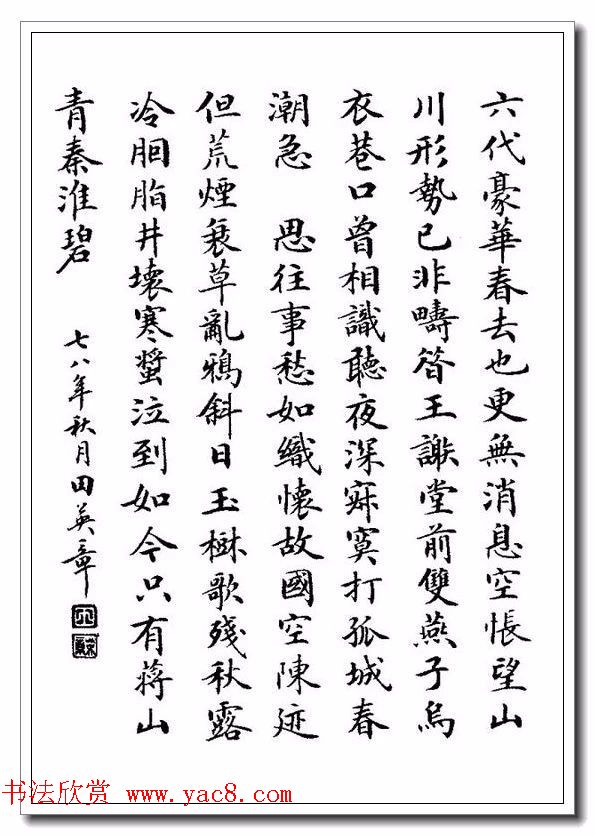 六代豪華春去也更無消息空悵望山
川形勢已非疇昔王謝堂前雙燕子烏
衣巷口曾相識聽夜深寂寞打孤城春
潮急 思往事愁如織懷故國空陳迹
但荒煙衰草亂鴉斜日玉樹歌殘秋露
冷胭脂井壞寒螿泣到如今只有蔣山
青秦淮碧 七八年秋月田英章
书法欣赏 www.yac8.com